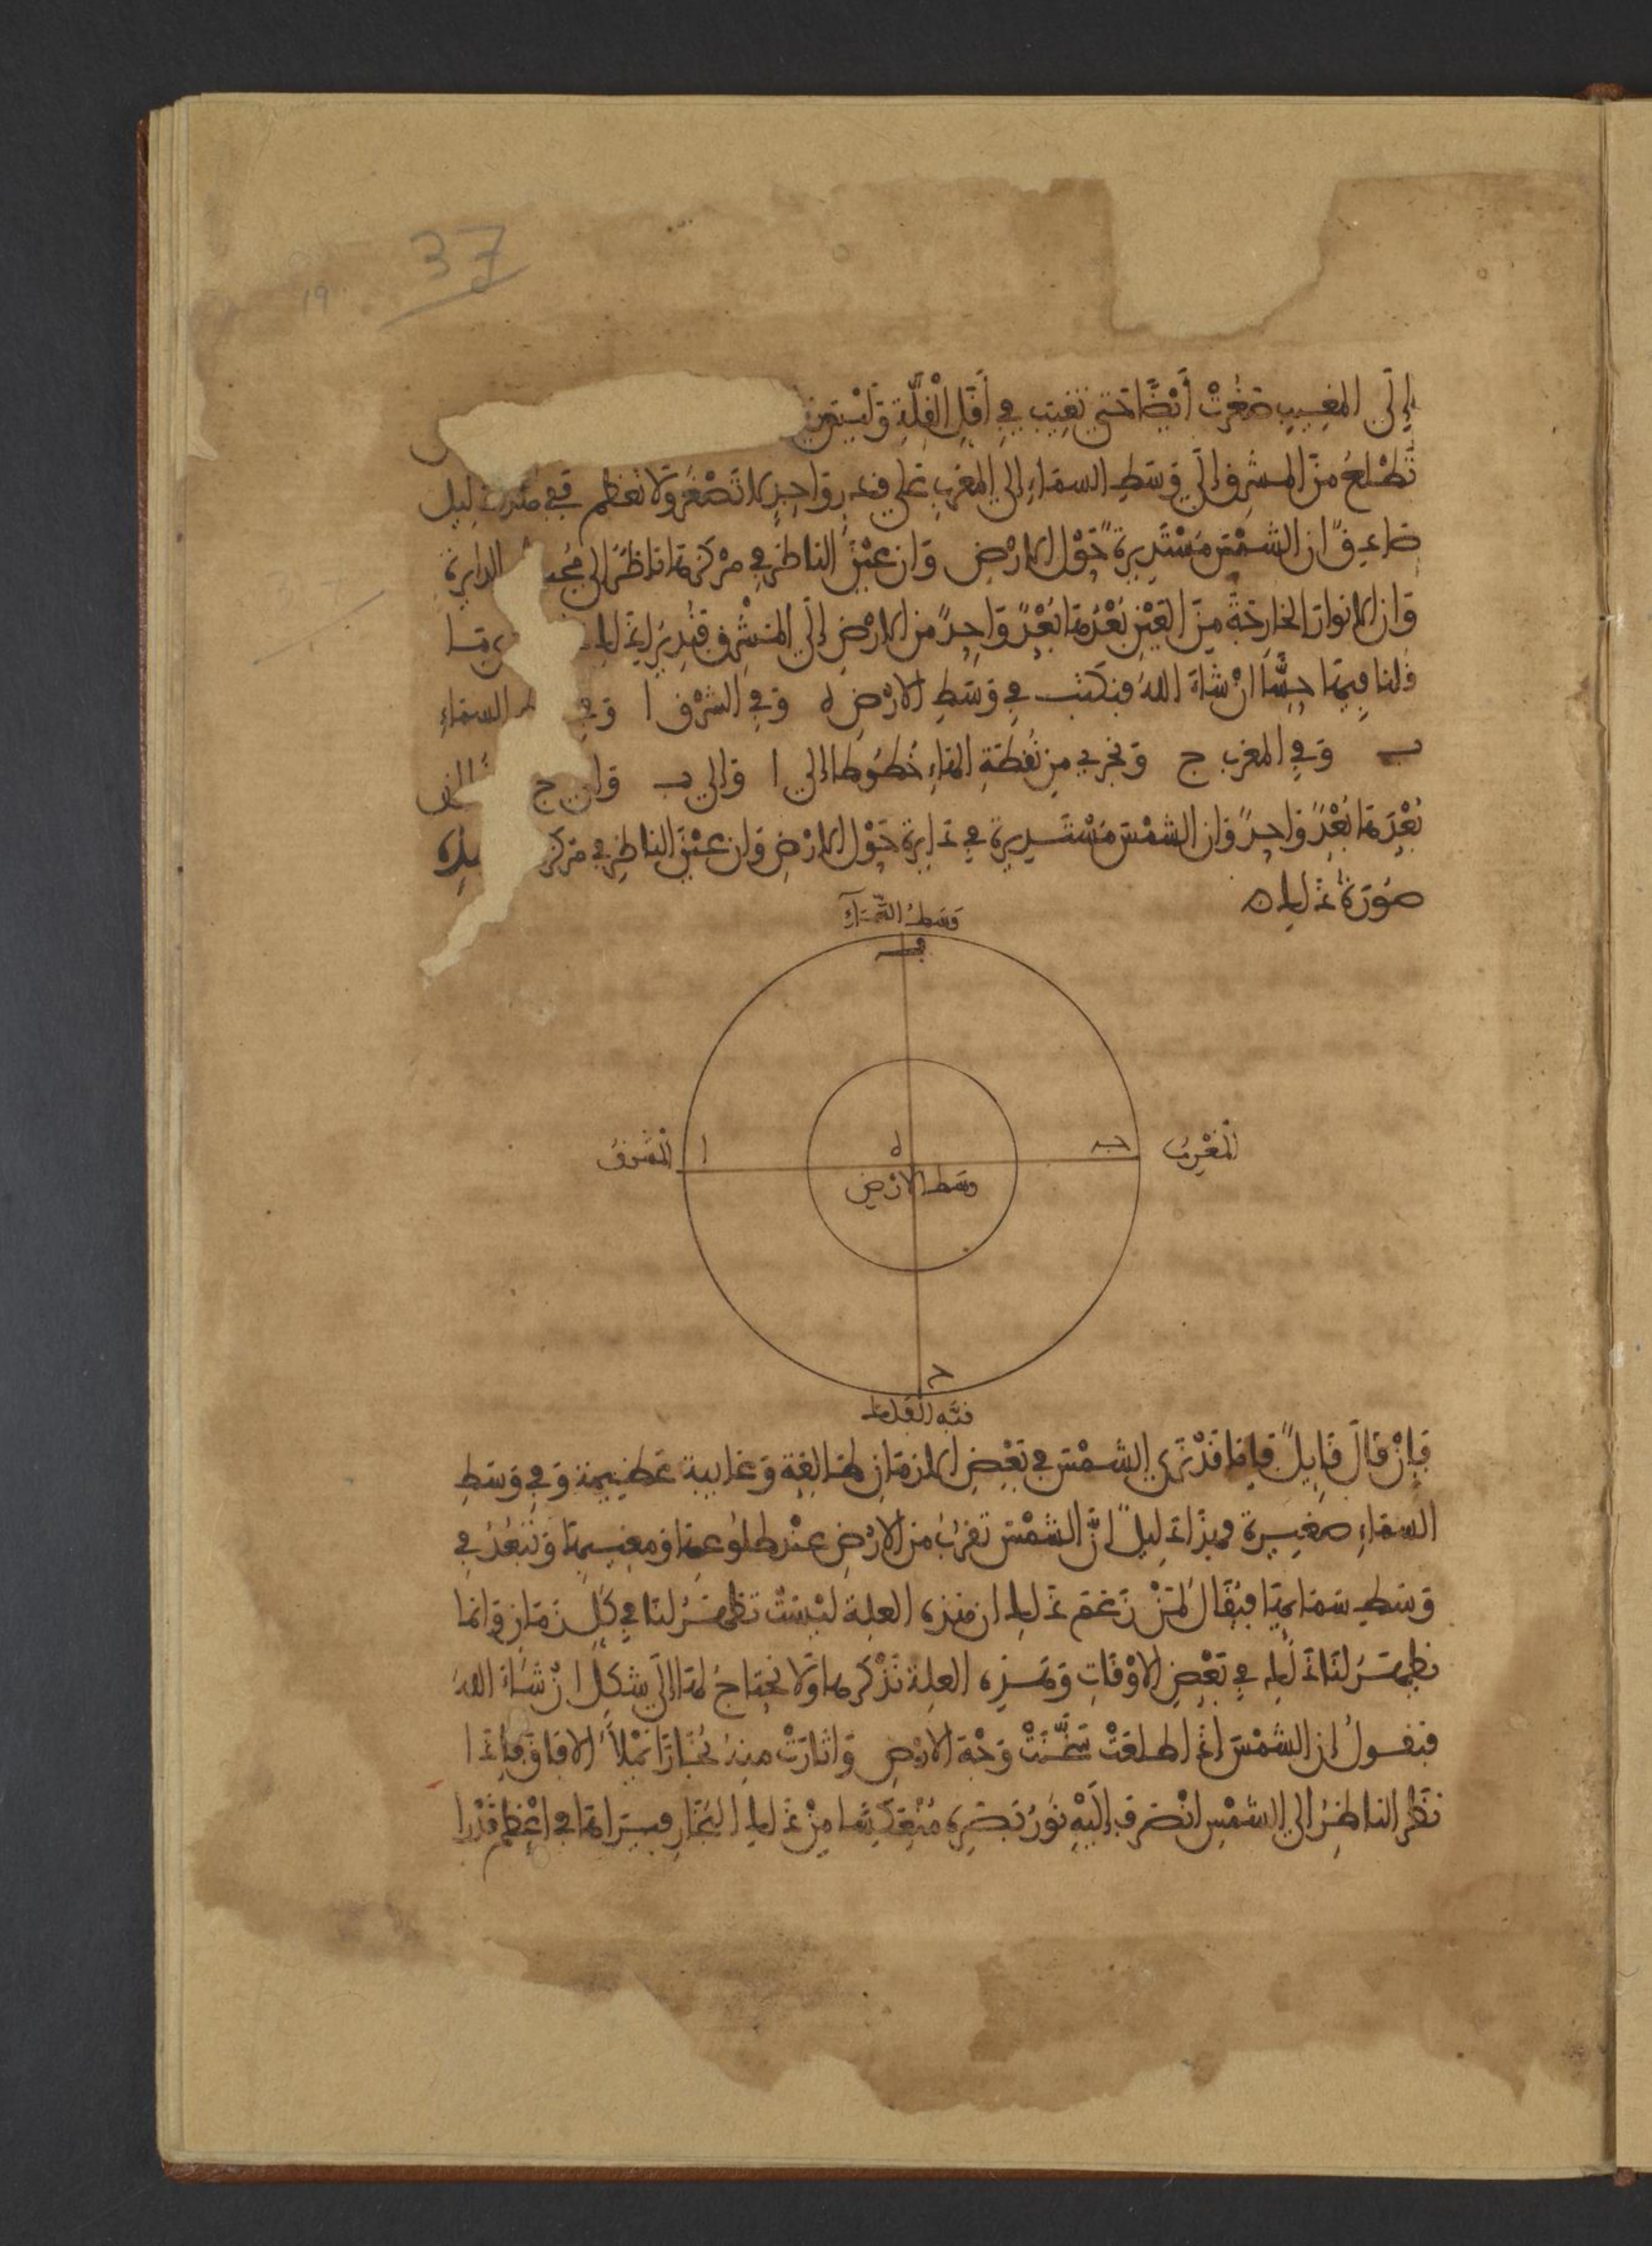 37
19
إِلَى المَغِيبِ صَغُرَتْ أَيْضًا حَتَّى تَغِيبَ فِي أَقَلِّ الْقِلَّةِ وَلَيْسَتْ
تَطْلُعُ مِنَ المَشْرِقِ إِلَى وَسَطِ السَّمَاءِ إِلَى المَغْرِبِ عَلَى قَدْرٍ وَاحِدٍ لَا تَصْغُرُ وَلَا تَعْظُمُ فَفِي دليل
صادق ان الشَّمْسَ مُسْتَدِيرَةٌ حَوْلَ الارْضِ وَان عَيْنَ الناظِرِ فِي مَرْكَزِهَا نَاظِرَ إلى الدايرة
وَان الانوار الخَارِجَةَ مِنَ العَيْنِ بُعْدُهَا بُعْدٌ وَاحِدٌ مِنَ الارْضِ إِلَى المَشْرِقِ
قلنا فِيهَا حِسًّا انْ شَاءَ اللهُ فنكتب فِي وَسَطِ الارْضِ ه وَفِي الشَّرْقِ ا وَفِي السماءِ
ب وَفِي المغرب ج وَنخرج مِن نُقْطَةِ الهَاءِ خُطُوطا إلى ا وَإلى ب وَإلى ج
بُعْدَهَا بُعْدٌ وَاحِدٌ وَان الشمْسَ مُسْتَدِيرة فِي دَايِرة حَوْلَ الارْضِ وَان عَيْنَ الناظِرِ فِي مَرْكَز
صُورَةُ ذَلِكَ
وَسَطُ السَّمَاءِ
ب
المَغْرِبُ
المَشْرِقُ
ا
ه
وسَط الارْضِ
ج
فَإِنْ قَالَ قَايِلٌ فَإِنا قَدْ نَرَى الشمْسَ فِي بَعْضِ الازمَانِ طَالِعَةً وَغايبة عَظِيمة وَفِي وَسَطِ
السماءِ صَغِيرة فهذا دَلِيلٌ انَّ الشمْسَ تَقْرُبُ مِن الارْضِ عِنْدَ طلُوعِهَا وَمغِيبِهَا وَتَبْعُدُ فِي
وَسَطِ سَمَايِهَا فيُقَالُ لِمَنْ زَعَمَ ذَلِكَ ان هَذِهِ العِلة لَيْسَتْ تَظْهَرُ لنَا فِي كُلِّ زمَانٍ وَإنما
يظهَرُ لنَا ذَلِكَ فِي بَعْضِ الاوْقَاتِ وَهَذِهِ العِلة نَذْكُرهَا وَلَا نَحْتَاجُ لَهَا إِلَى شَكْلٍ انْ شَاءَ اللهُ
فَنقُولُ ان الشمْسَ اذَا طلعَتْ سَخَّنَتْ وَجْهَ الارْضِ وَاثَارَتْ منهُ بُخَارًا يَمْلأُ الافَاقَ فإذَا
نَظَر الناظِرُ إلى الشمْسِ انْصَرَفَ إِلَيْهِ نُورُ بَصَرِهِ مُنْعَكِسًا مِنْ ذَلِكَ البُخَارِ فيَرَاهَا فِي اعْظمِ قَدْرا